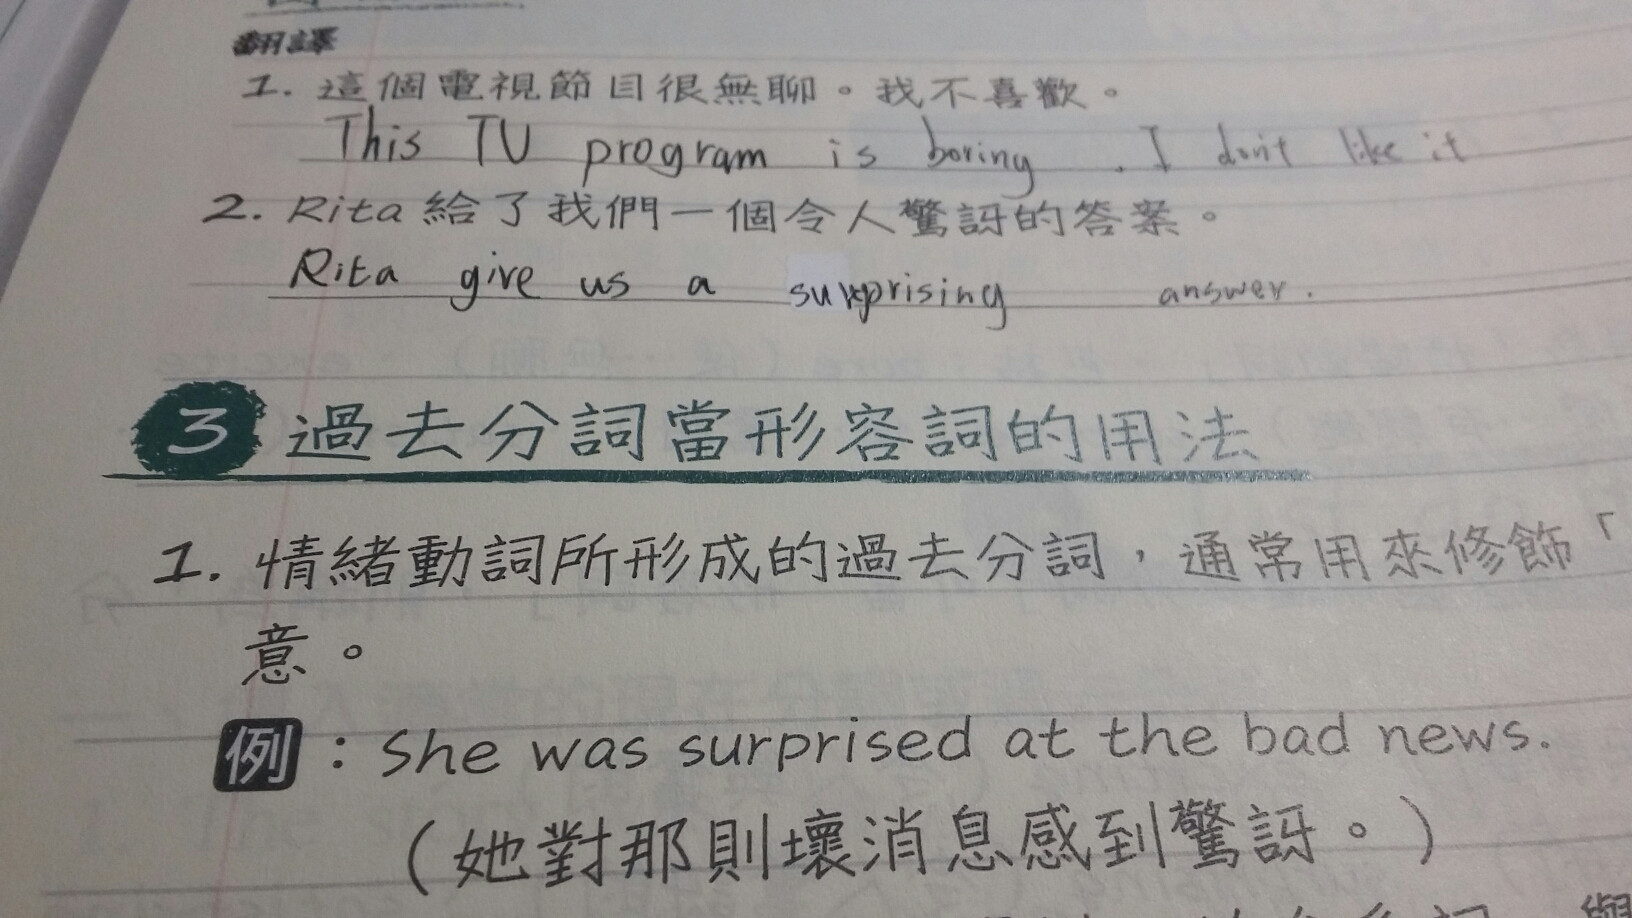 翻譯
1. 這個電視節目很無聊。我不喜歡。
This TV program is boring . I don't like it
2. Rita 給了我們一個令人驚訝的答案。
Rita give us a surprising answer.
3 過去分詞當形容詞的用法
1. 情緒動詞所形成的過去分詞，通常用來修飾「
意。
例：She was surprised at the bad news.
（她對那則壞消息感到驚訝。）